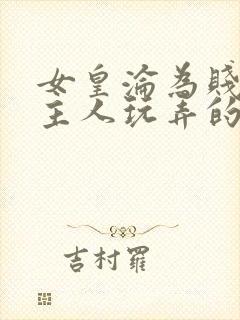 女皇淪為賤
主人玩弄的
吉村羅